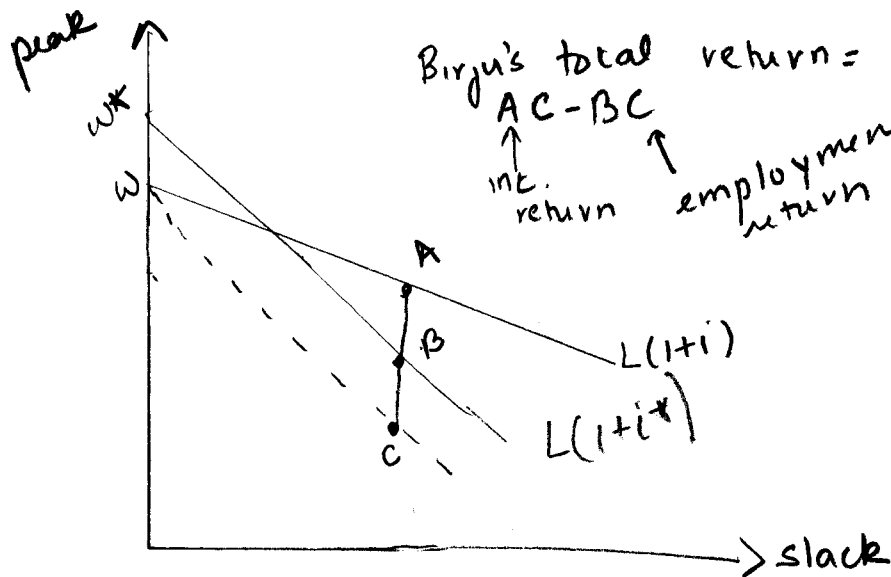 peak
Birju's total return =
AC - BC
int.
return
employmen
return
w*
w
A
B
C
L(1+i)
L(1+i*)
slack